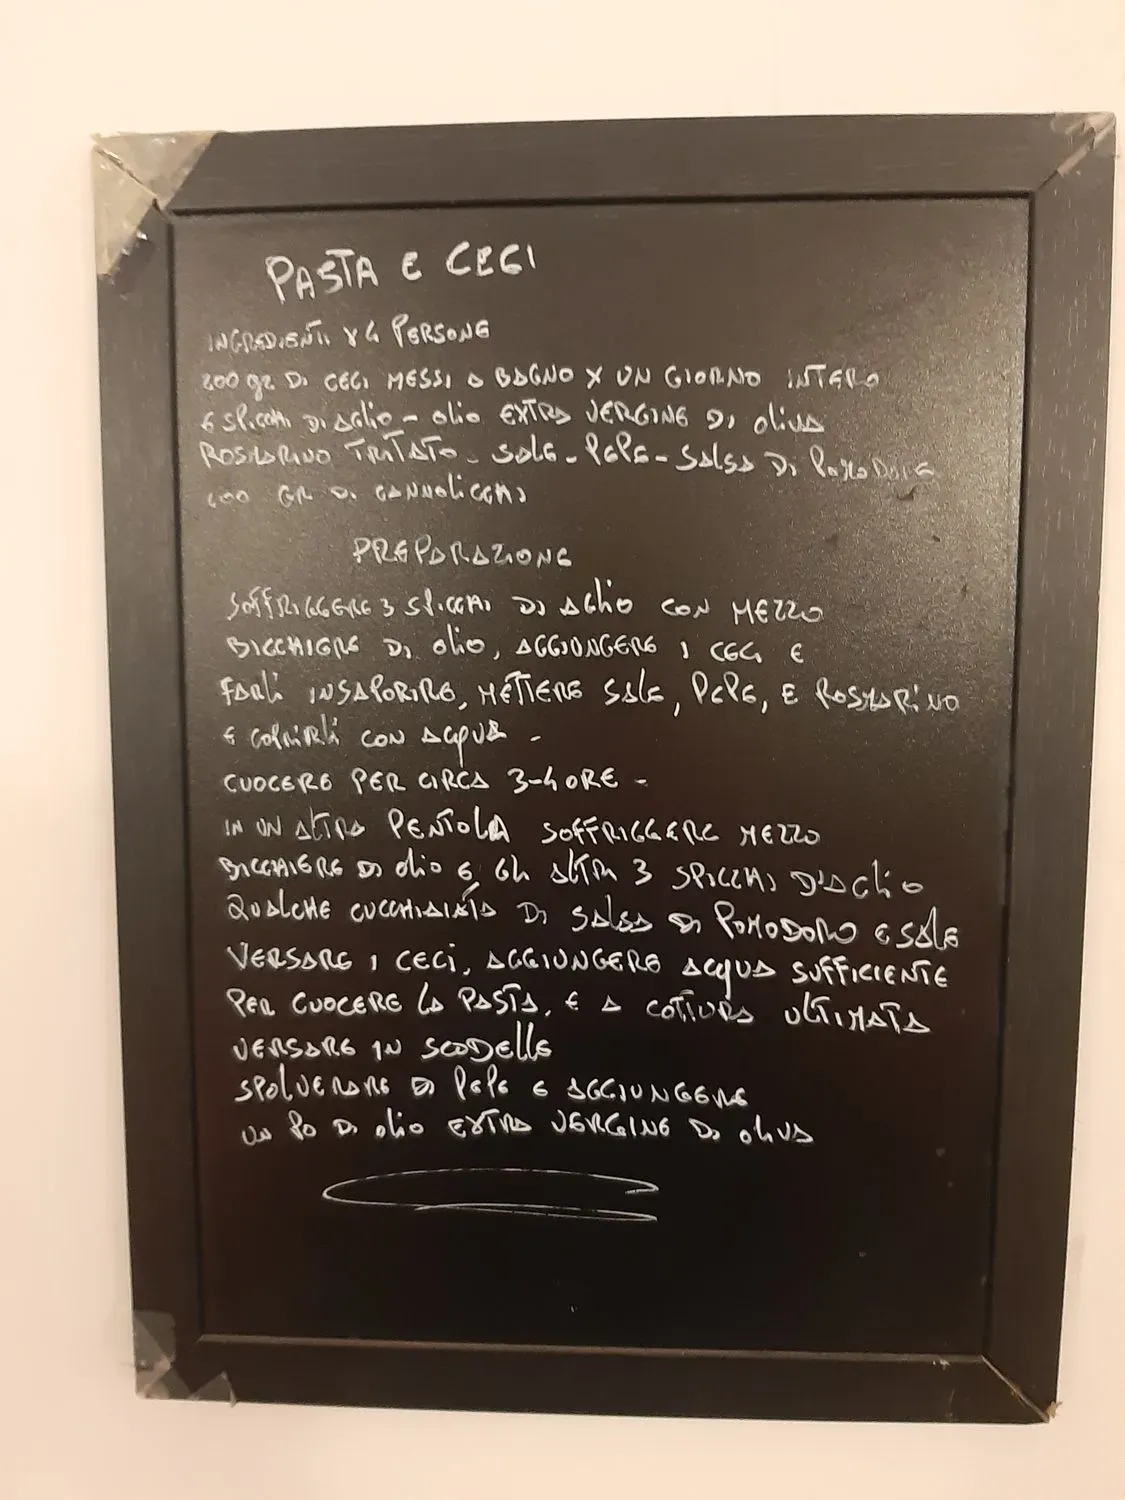 PASTA E CECI
INGREDIENTI X 4 PERSONE
200 gr DI CECI MESSI A BAGNO X UN GIORNO INTERO
6 SPICCHI DI AGLIO - OLIO EXTRA VERGINE DI OLIVA
ROSMARINO TRITATO - SALE - PEPE - SALSA DI POMODORO
GR DI CANNOLICCHI
PREPARAZIONE
SOFFRIGGERE 3 SPICCHI DI AGLIO CON MEZZO
BICCHIERE DI OLIO, AGGIUNGERE I CECI E
FARLI INSAPORIRE, METTERE SALE, PEPE, E ROSMARINO
E COPRIRLI CON ACQUA -
CUOCERE PER CIRCA 3-4 ORE -
IN UN ALTRA PENTOLA SOFFRIGGERE MEZZO
BICCHIERE DI OLIO E GLI ALTRI 3 SPICCHI D'AGLIO
QUALCHE CUCCHIAIATA DI SALSA DI POMODORO E SALE
VERSARE I CECI, AGGIUNGERE ACQUA SUFFICIENTE
PER CUOCERE LA PASTA, E A COTTURA ULTIMATA
VERSARE IN SCODELLE
SPOLVERARE DI PEPE E AGGIUNGERE
UN PO DI OLIO EXTRA VERGINE DI OLIVA